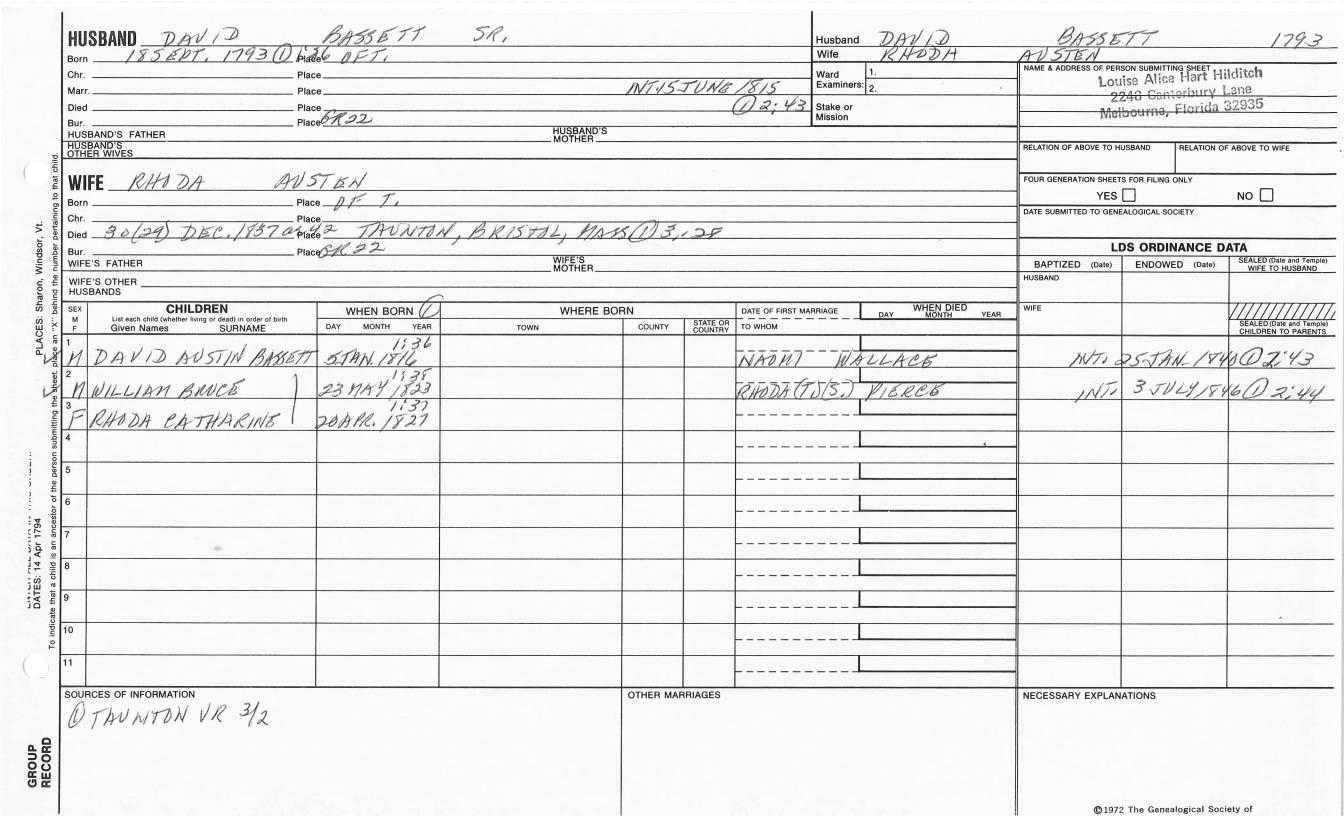 HUSBAND DAVID BASSETT SR.
Born 18 SEPT. 1793 ① 1:36 Place OF T.
Chr. Place
Marr. Place INT. 15 JUNE 1815
Died Place ① 2:43
Bur. Place GR22
HUSBAND'S FATHER HUSBAND'S MOTHER
HUSBAND'S OTHER WIVES
Husband DAVID BASSETT 1793
Wife RHODA AUSTEN
Ward Examiners: 1.
2.
Stake or Mission
NAME & ADDRESS OF PERSON SUBMITTING SHEET
Louise Alice Hart Hilditch
2240 Canterbury Lane
Melbourne, Florida 32935
RELATION OF ABOVE TO HUSBAND RELATION OF ABOVE TO WIFE
FOUR GENERATION SHEETS FOR FILING ONLY
YES NO
DATE SUBMITTED TO GENEALOGICAL SOCIETY
WIFE RHODA AUSTEN
Born Place OF T.
Chr. Place
Died 30(29) DEC. 1837 Place TAUNTON, BRISTOL, MASS ① 3:28
Bur. Place GR22
WIFE'S FATHER WIFE'S MOTHER
WIFE'S OTHER HUSBANDS
LDS ORDINANCE DATA
BAPTIZED (Date) ENDOWED (Date) SEALED (Date and Temple) WIFE TO HUSBAND
HUSBAND
WIFE
SEALED (Date and Temple) CHILDREN TO PARENTS
SEX M F
CHILDREN
List each child (whether living or dead) in order of birth
Given Names SURNAME
WHEN BORN ①
DAY MONTH YEAR
WHERE BORN
TOWN COUNTY STATE OR COUNTRY
DATE OF FIRST MARRIAGE
TO WHOM
WHEN DIED
DAY MONTH YEAR
1 M DAVID AUSTIN BASSETT 5 JAN. 1816 1:36 NAOMI WALLACE INT. 25 JAN. 1840 ① 2:43
2 M WILLIAM BRUCE 23 MAY 1823 1:38 RHODA (T.)(S.) PIERCE INT. 3 JULY 1846 ① 2:44
3 F RHODA CATHARINE 20 APR. 1827 1:37
4
5
6
7
8
9
10
11
SOURCES OF INFORMATION
① TAUNTON VR 3/2
OTHER MARRIAGES
NECESSARY EXPLANATIONS
©1972 The Genealogical Society of
PLACES: Sharon, Windsor, Vt.
DATES: 14 Apr 1794
To indicate that a child is an ancestor of the person submitting the sheet, place an "X" behind the number pertaining to that child.
GROUP RECORD